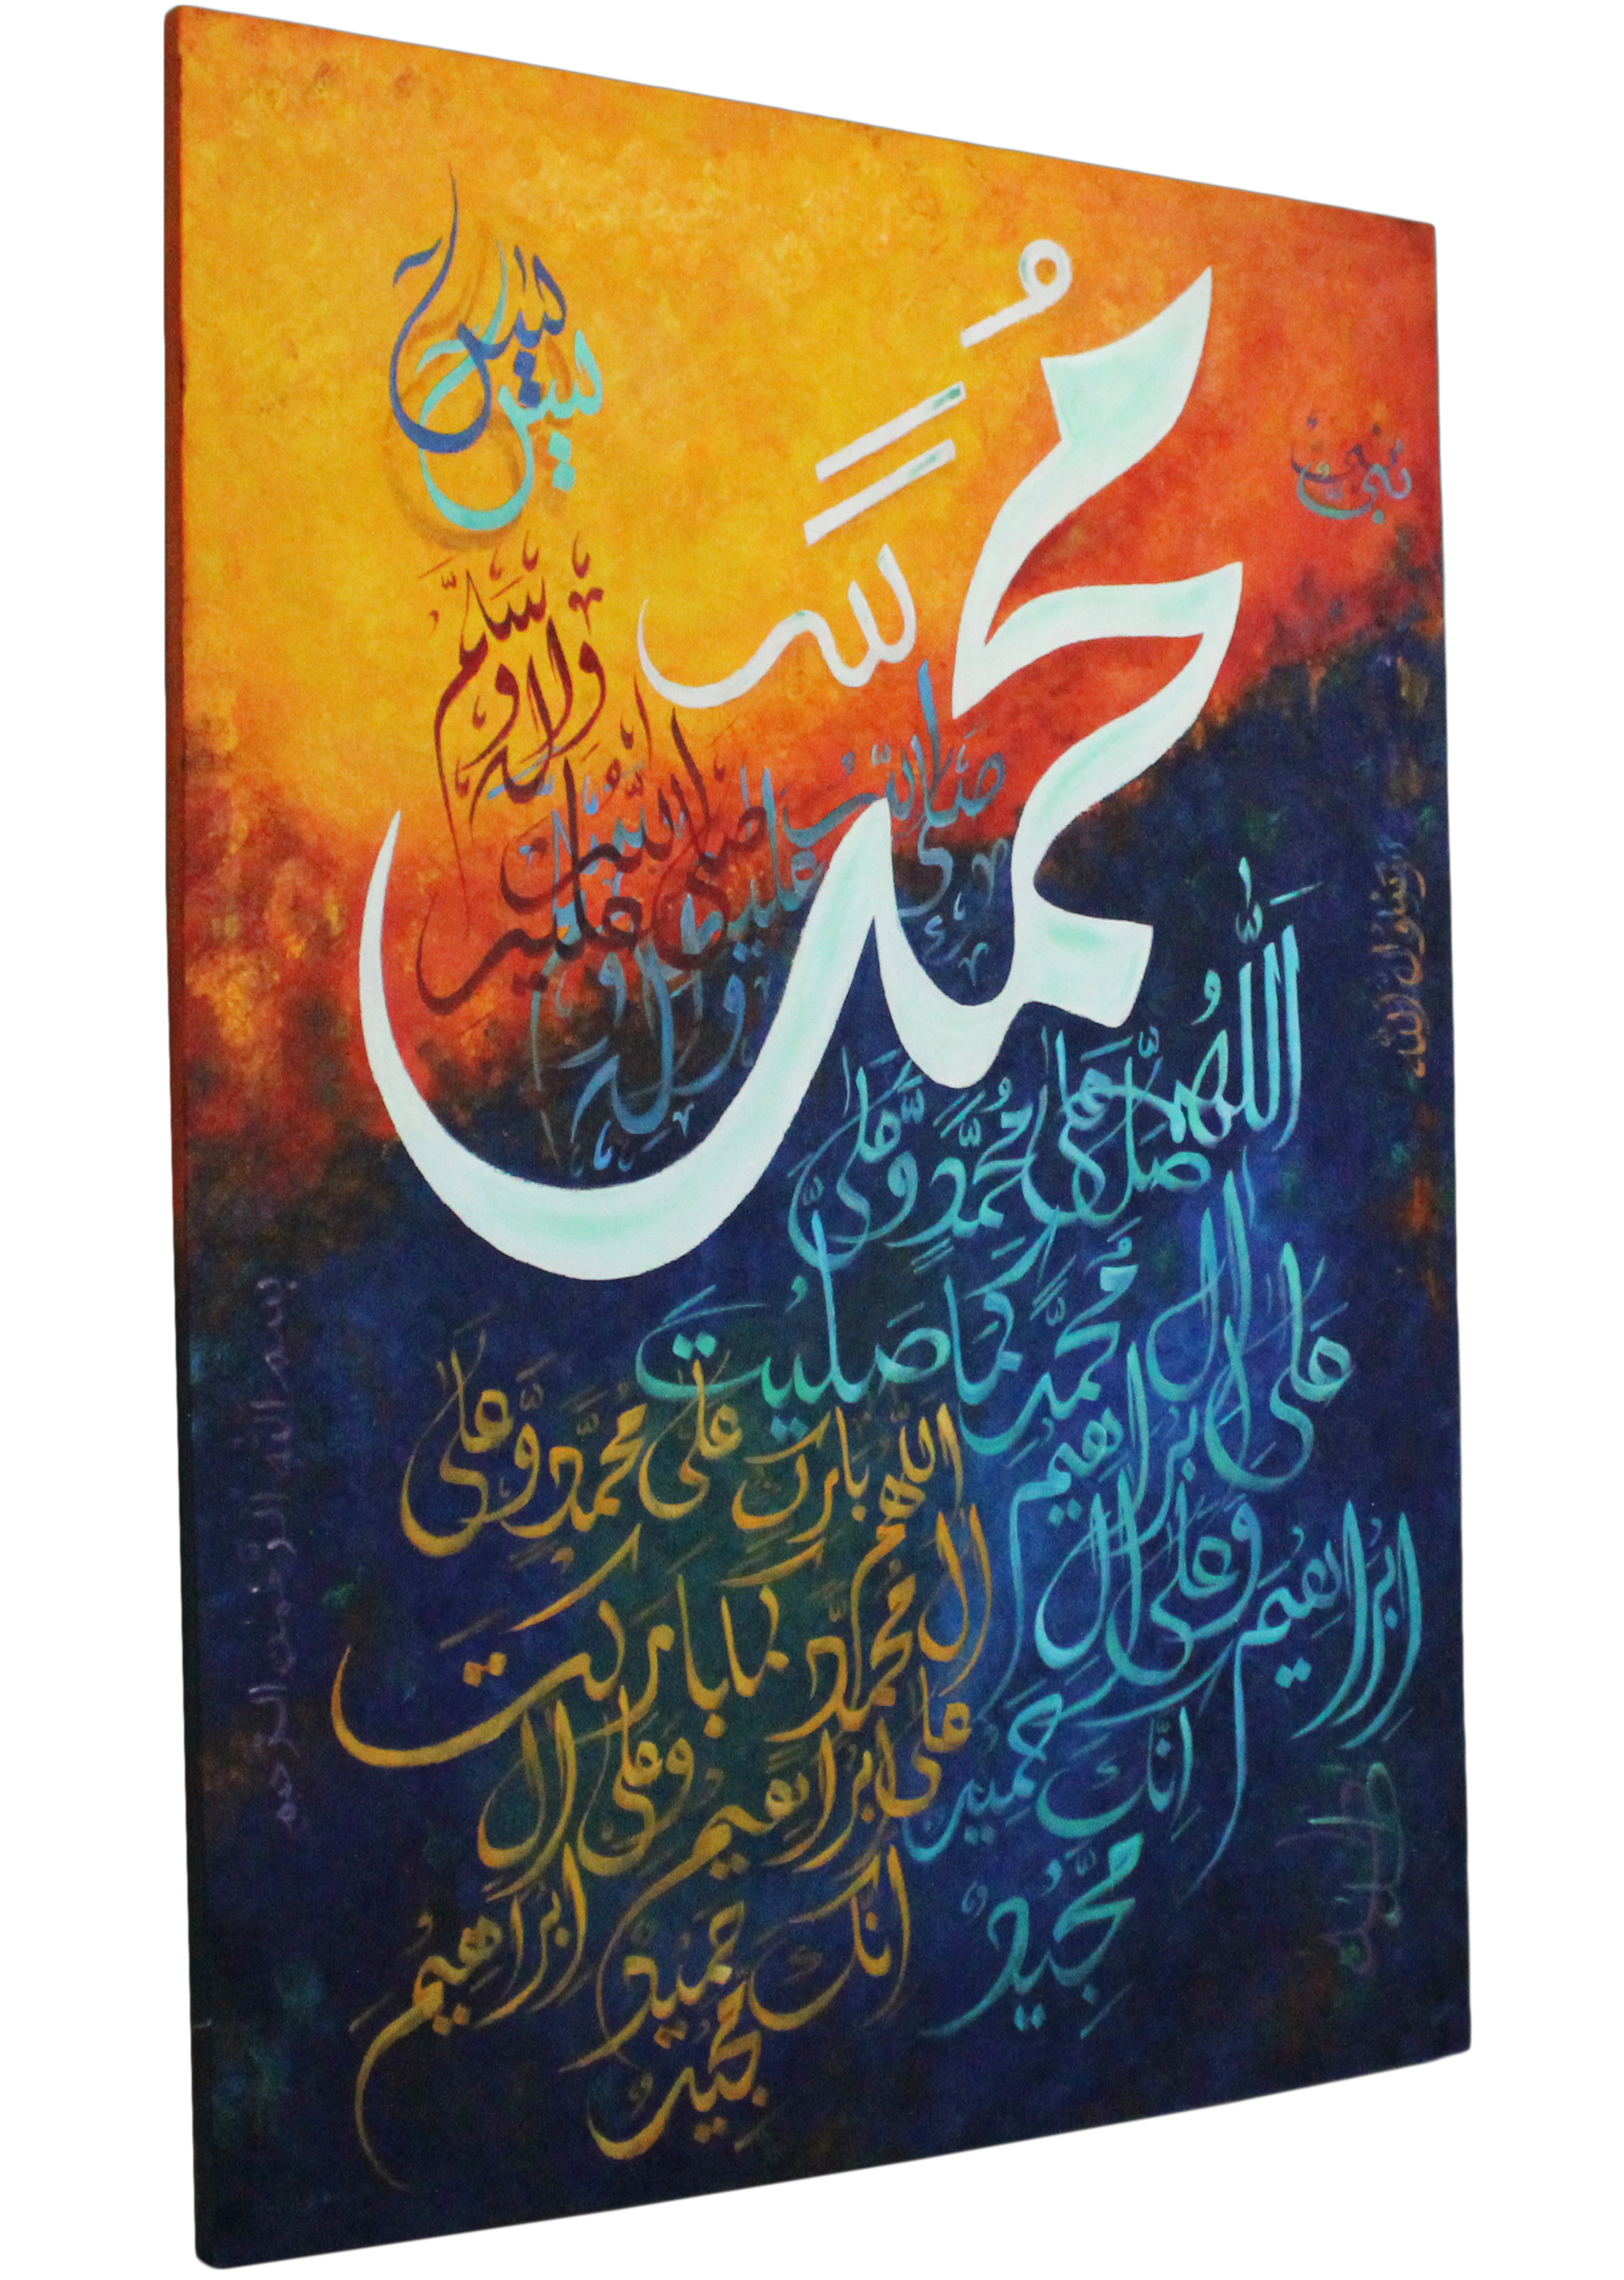 مُحَمَّد
نبی
یٰسٓ
یٰسٓ
صلى الله عليه وآله وسلم
صلى الله عليه وآله
رسول الله
اَللّٰهُمَّ صَلِّ عَلٰى مُحَمَّدٍ وَّعَلٰى
اٰلِ مُحَمَّدٍ كَمَا صَلَّيْتَ
عَلٰى اِبْرَاهِيْمَ
وَعَلٰى اٰلِ اِبْرَاهِيْمَ
اِنَّكَ حَمِيْدٌ
مَّجِيْدٌ
اللّٰهم بارك على مُحَمَّدٍ وَّعَلٰى
اٰل مُحَمَّدٍ كما باركت
على ابراهيم وعلى اٰل
اِبْرَاهِيْمَ انك حَمِيْدٌ
مَّجِيْدٌ
بسم الله الرحمن الرحيم